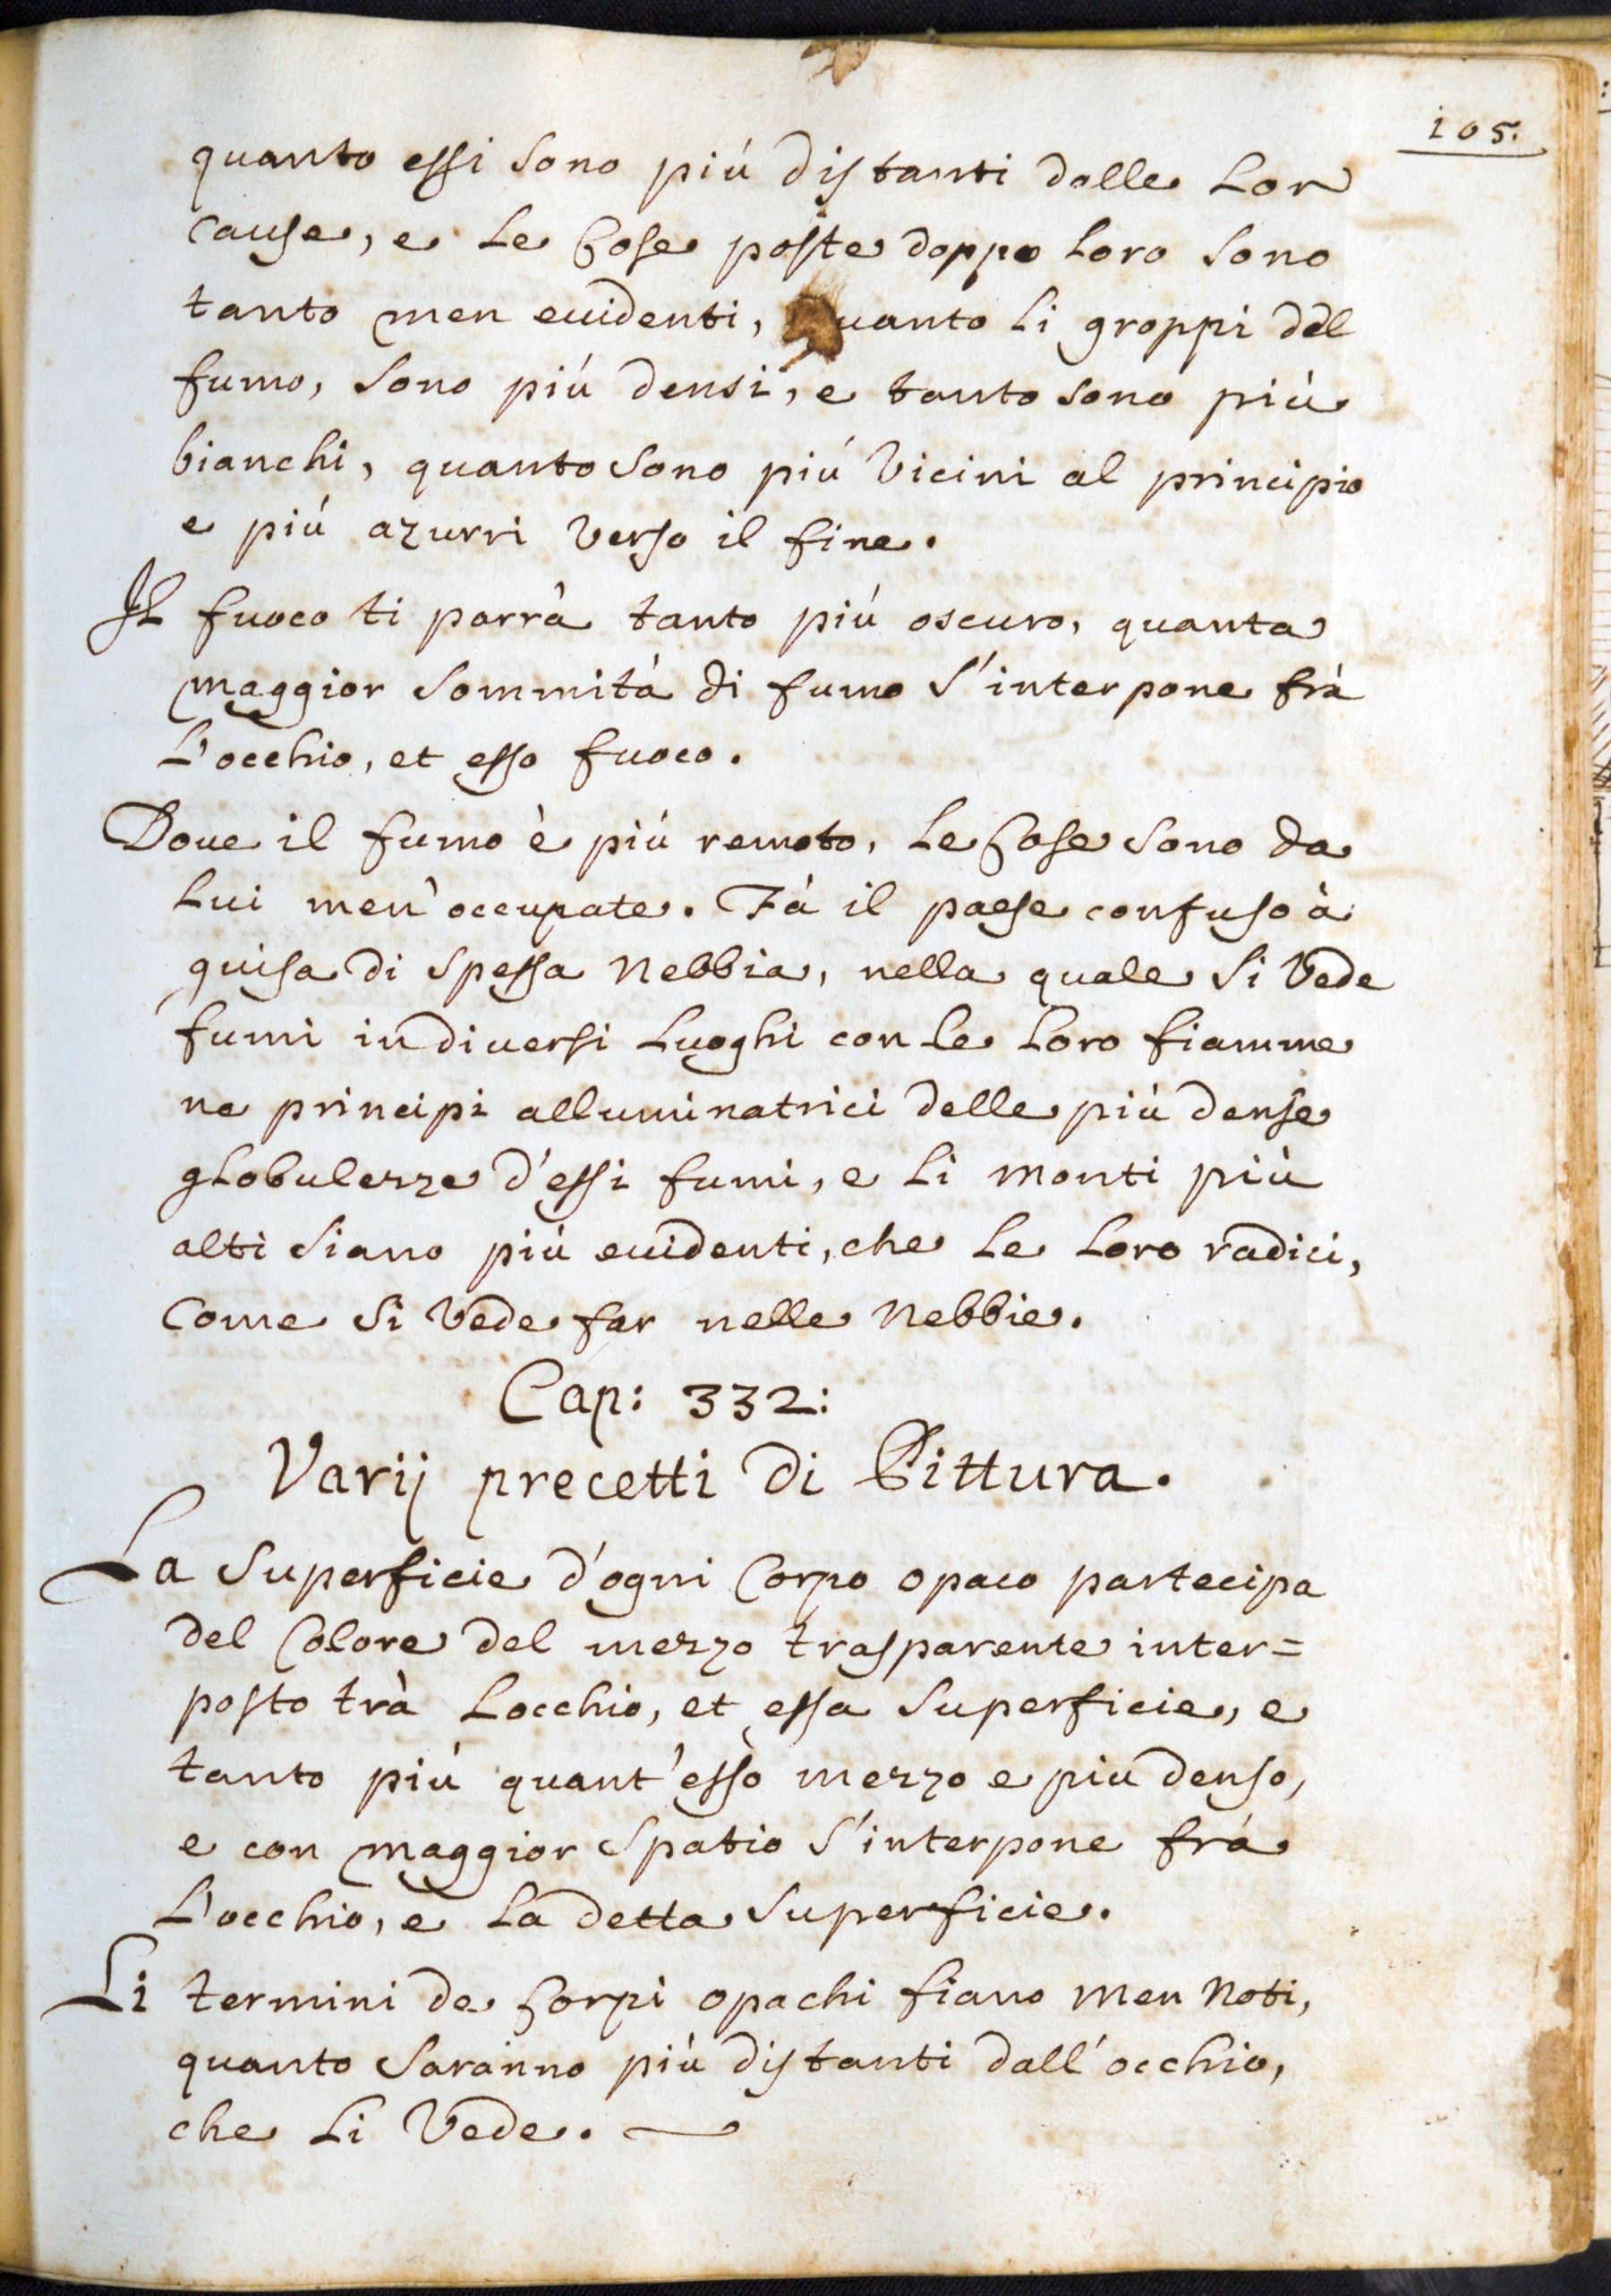 105.
quanto essi sono più distanti dalle Lor
Cause, e le Cose poste doppo loro sono
tanto men euidenti, quanto li groppi del
fumo, sono più densi, e tanto sono più
bianchi, quanto sono più Vicini al principio
e più azurri Verso il fine.
Il fuoco ti parrà tanto più oscuro, quanta
maggior sommità di fumo s'interpone frà
L'occhio, et esso fuoco.
Doue il fumo è più remoto, le Cose sono da
Lui men'occupate. Fà il paese confuso à
guisa di spessa Nebbia, nella quale si Vede
fumi in diuersi Luoghi con le Loro fiamme
ne principi alluminatrici delle più dense
globulezze d'essi fumi, e li Monti più
alti siano più euidenti, che le Loro radici,
Come si Vede far nelle Nebbie.
Cap: 332:
Varij precetti di Pittura.
La superficie d'ogni Corpo opaco partecipa
del Colore del mezzo trasparente inter=
posto trà Locchio, et essa superficie, e
tanto più quant'esso mezzo e più denso,
e con maggior spatio s'interpone frà
L'occhio, e la detta superficie.
Li termini de Corpi opachi fiano Men Noti,
quanto saranno più distanti dall'occhio,
che li Vede.